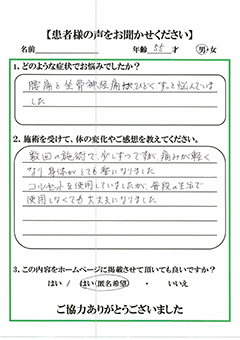 【患者様の声をお聞かせください】
名前 年齢 55 才 男・女
1. どのような症状でお悩みでしたか?
腰痛と坐骨神経痛がひどくずっと悩んでいま
した
2. 施術を受けて、体の変化やご感想を教えてください。
数回の施術で、少しずつですが、痛みが軽く
なり身体がとても楽になりました
コルセットを使用していましたが、普段の生活で
使用しなくても大丈夫になりました
3. この内容をホームページに掲載させて頂いても良いですか?
はい / はい(匿名希望) ・ いいえ
ご協力ありがとうございました